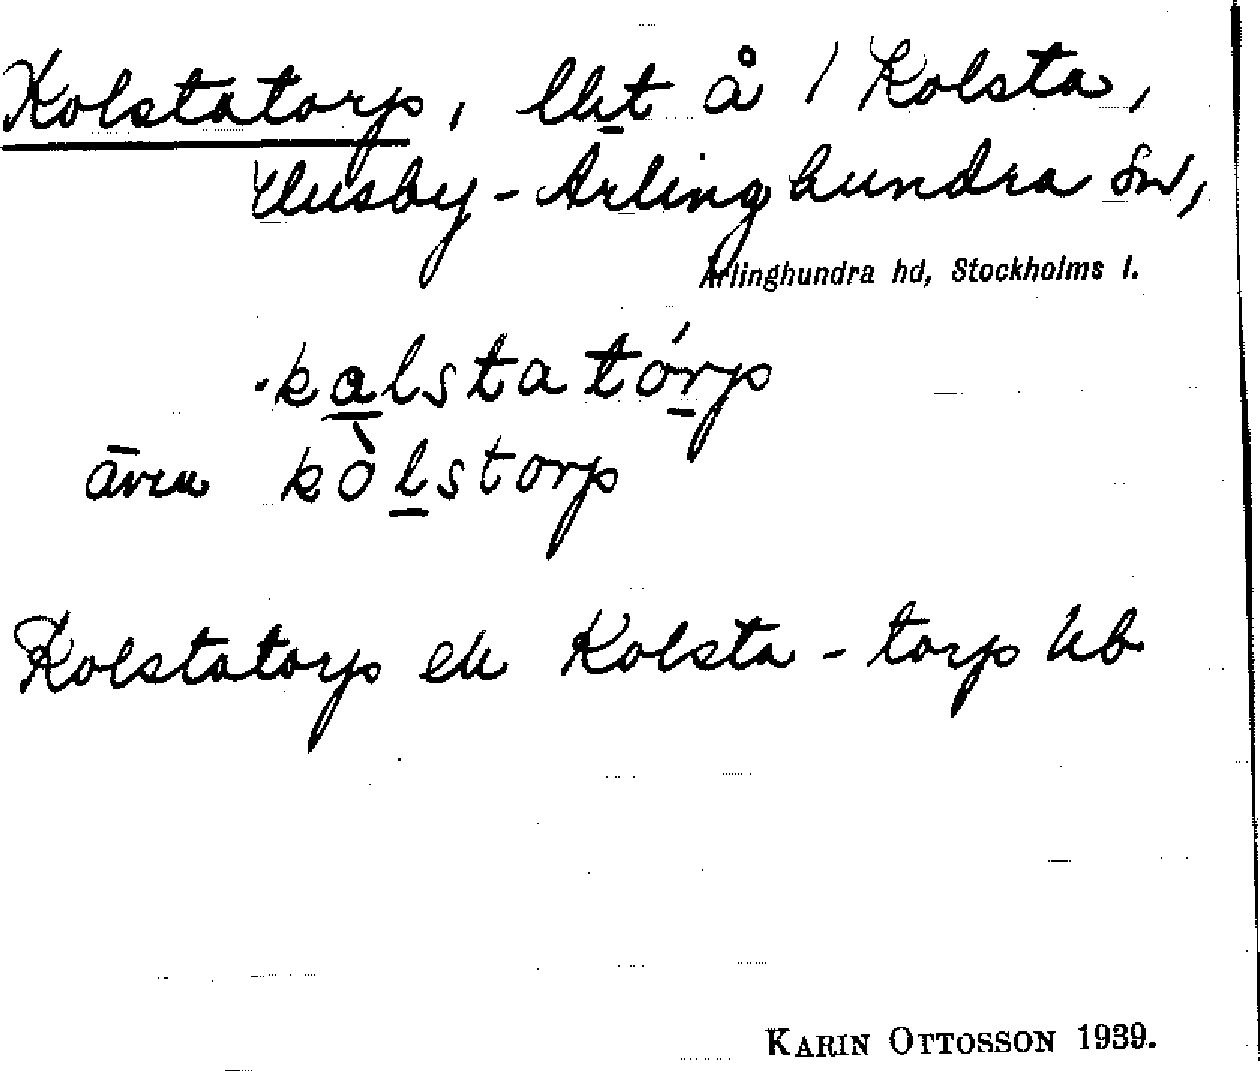 Kolstatorp, lht å 1 Kolsta,
Husby-Ärlinghundra sn,
Ärlinghundra hd, Stockholms l.
kalstatórp
även kòlstorp
Kolstatorp ek Kolsta-torp hb
KARIN OTTOSSON 1939.